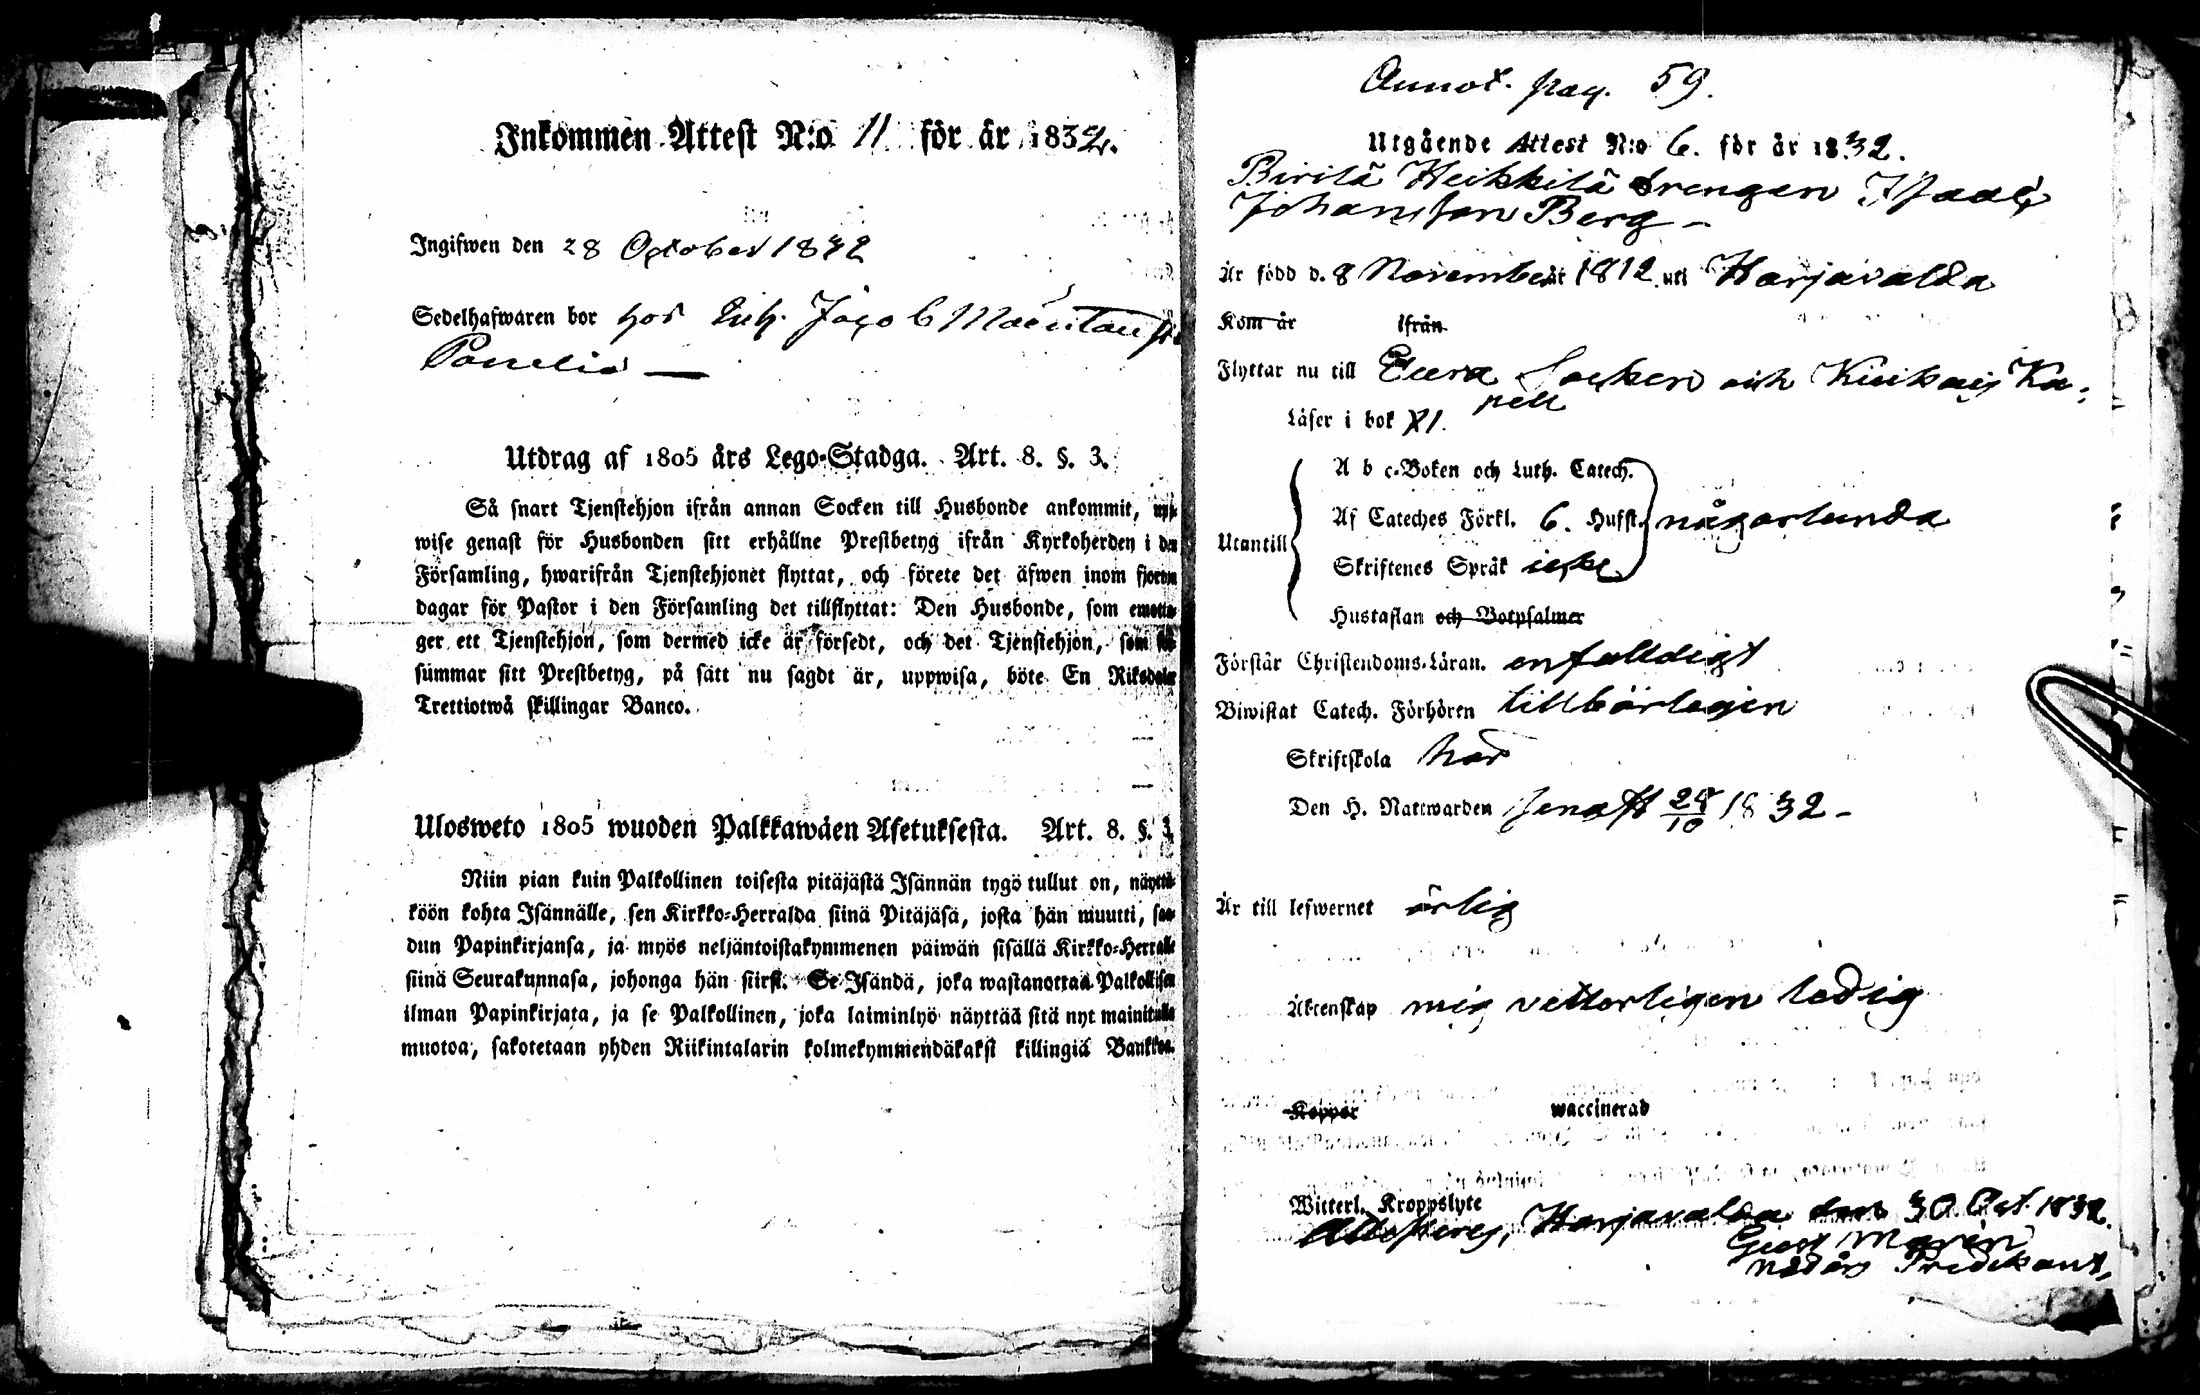 Inkommen Attest N:o 11 för år 1832.
Ingifwen den 28 October 1832
Sedelhafwaren bor hos Jacob
Panelia —
Utdrag af 1805 års Lego-Stadga. Art. 8. §. 3.
Så snart Tjenstehjon ifrån annan Socken till Husbonde ankommit, upp-
wise genast för Husbonden sitt erhållne Prestbetyg ifrån Kyrkoherden i den
Församling, hwarifrån Tjenstehjonet flyttat, och förete det äfwen inom fjorton
dagar för Pastor i den Församling det tillflyttat: Den Husbonde, som emotta-
ger ett Tjenstehjon, som dermed icke är försedt, och det Tjenstehjon, som för-
summar sitt Prestbetyg, på sätt nu sagdt är, uppwisa, böte En Riksdaler
Trettiotwå skillingar Banco.
Ulosweto 1805 wuoden Palkkawäen Asetuksesta. Art. 8. §. 3.
Niin pian kuin Palkollinen toisesta pitäjästä Isännän tygö tullut on, näyttä-
köön kohta Isännälle, sen Kirkko-Herralda siinä Pitäjäsä, josta hän muutti, saa-
dun Papinkirjansa, ja myös neljäntoistakymmenen päiwän sisällä Kirkko-Herralle
siinä Seurakunnasa, johonga hän siirsi. Se Isändä, joka wastanottaa Palkollisen
ilman Papinkirjata, ja se Palkollinen, joka laiminlyö näyttää sitä nyt mainitulla
muotoa, sakotetaan yhden Riikintalarin kolmekymmendäkaksi killingiä Bankkoa.
Annot. pag. 59.
Utgående Attest N:o 6. för år 1832.
Pirilä Heikkilä drengen Isaac
Johansson Berg —
Är född d. 8 November år 1812 uti Harjavalda
Kom år ifrån
Flyttar nu till Eura Socken och Kiukais Ka-
pell
Läser i bok XI.
A b c-Boken och Luth. Catech.
Af Cateches Förkl. 6. Hufst. någorlunda
Utantill
Skriftenes Språk icke
Hustaflan och Botpsalmer
Förstår Christendoms-Läran. enfaldigt
Biwistat Catech. Förhören tillbörligen
Skriftskola har
Den H. Nattwarden senast 28/10 1832 —
Är till lefwernet ärlig
Äktenskap mig vetterligen ledig
Koppor waccinerad
Witterl. Kroppslyte
Attesteras, Harjavalda den 30 Oct. 1832.
Gust Morén
Nådårs Predikant,